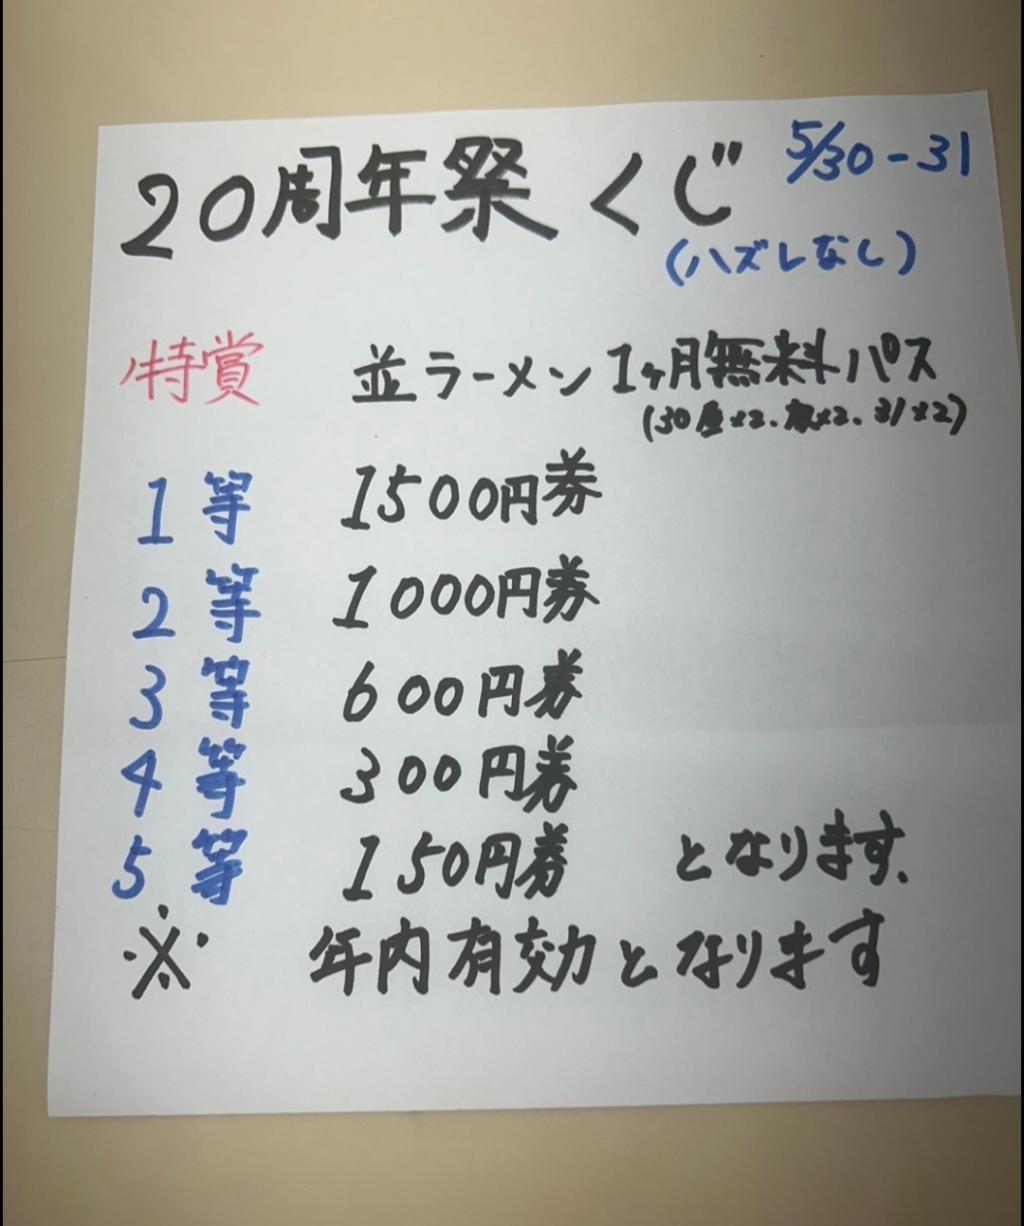 20周年祭くじ 5/30-31
(ハズレなし)
特賞 並ラーメン1ヶ月無料パス
(30昼×2、夜×2、31×2)
1等 1500円券
2等 1000円券
3等 600円券
4等 300円券
5等 150円券 となります、
※ 年内有効となります